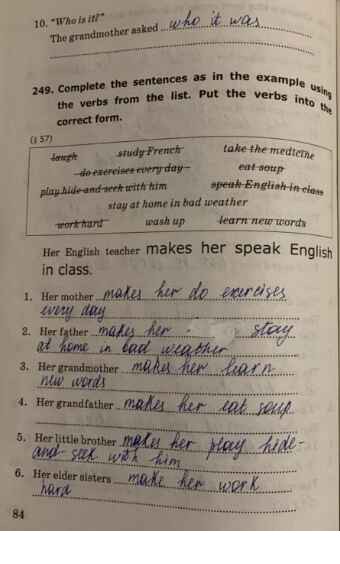 10. "Who is it?"
The grandmother asked who it was
249. Complete the sentences as in the example using
the verbs from the list. Put the verbs into the
correct form.
(§ 57)
laugh study French take the medicine
do exercises every day eat soup
play hide-and-seek with him speak English in class
stay at home in bad weather
work hard wash up learn new words
Her English teacher makes her speak English
in class.
1. Her mother makes her do exercises
every day
2. Her father makes her stay
at home in bad weather
3. Her grandmother makes her learn
new words
4. Her grandfather makes her eat soup
5. Her little brother makes her play hide-
and-seek with him
6. Her elder sisters make her work
hard
84